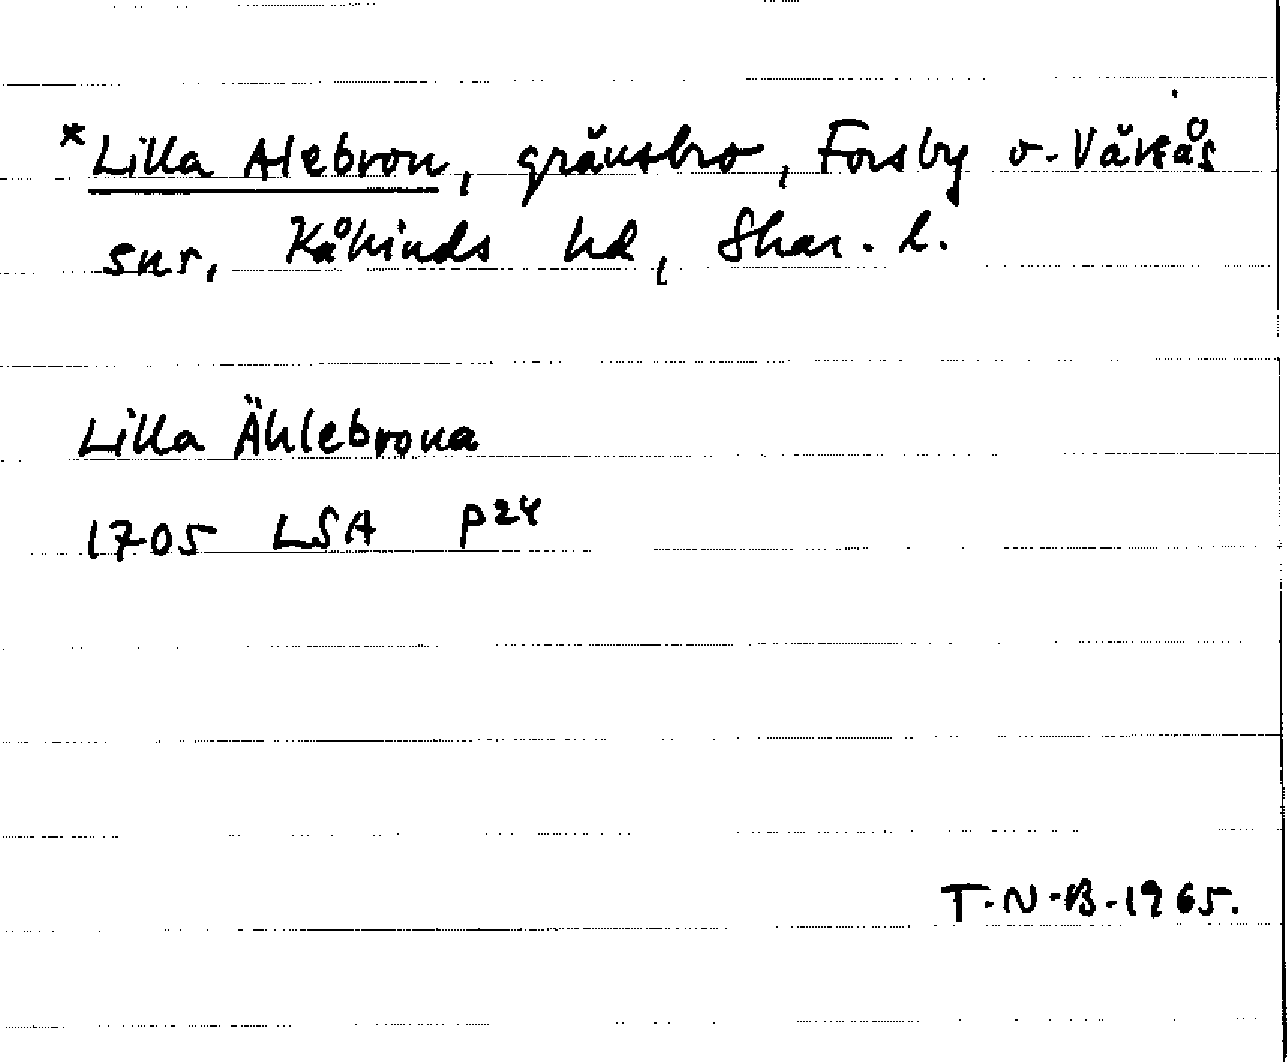 *Lilla Alebron, gränsbro, Forsby o. Värsås
snr, Kåkinds hd, Skar. l.
Lilla Ählebrona
1705 LSA P24
T.N.B. 1965.